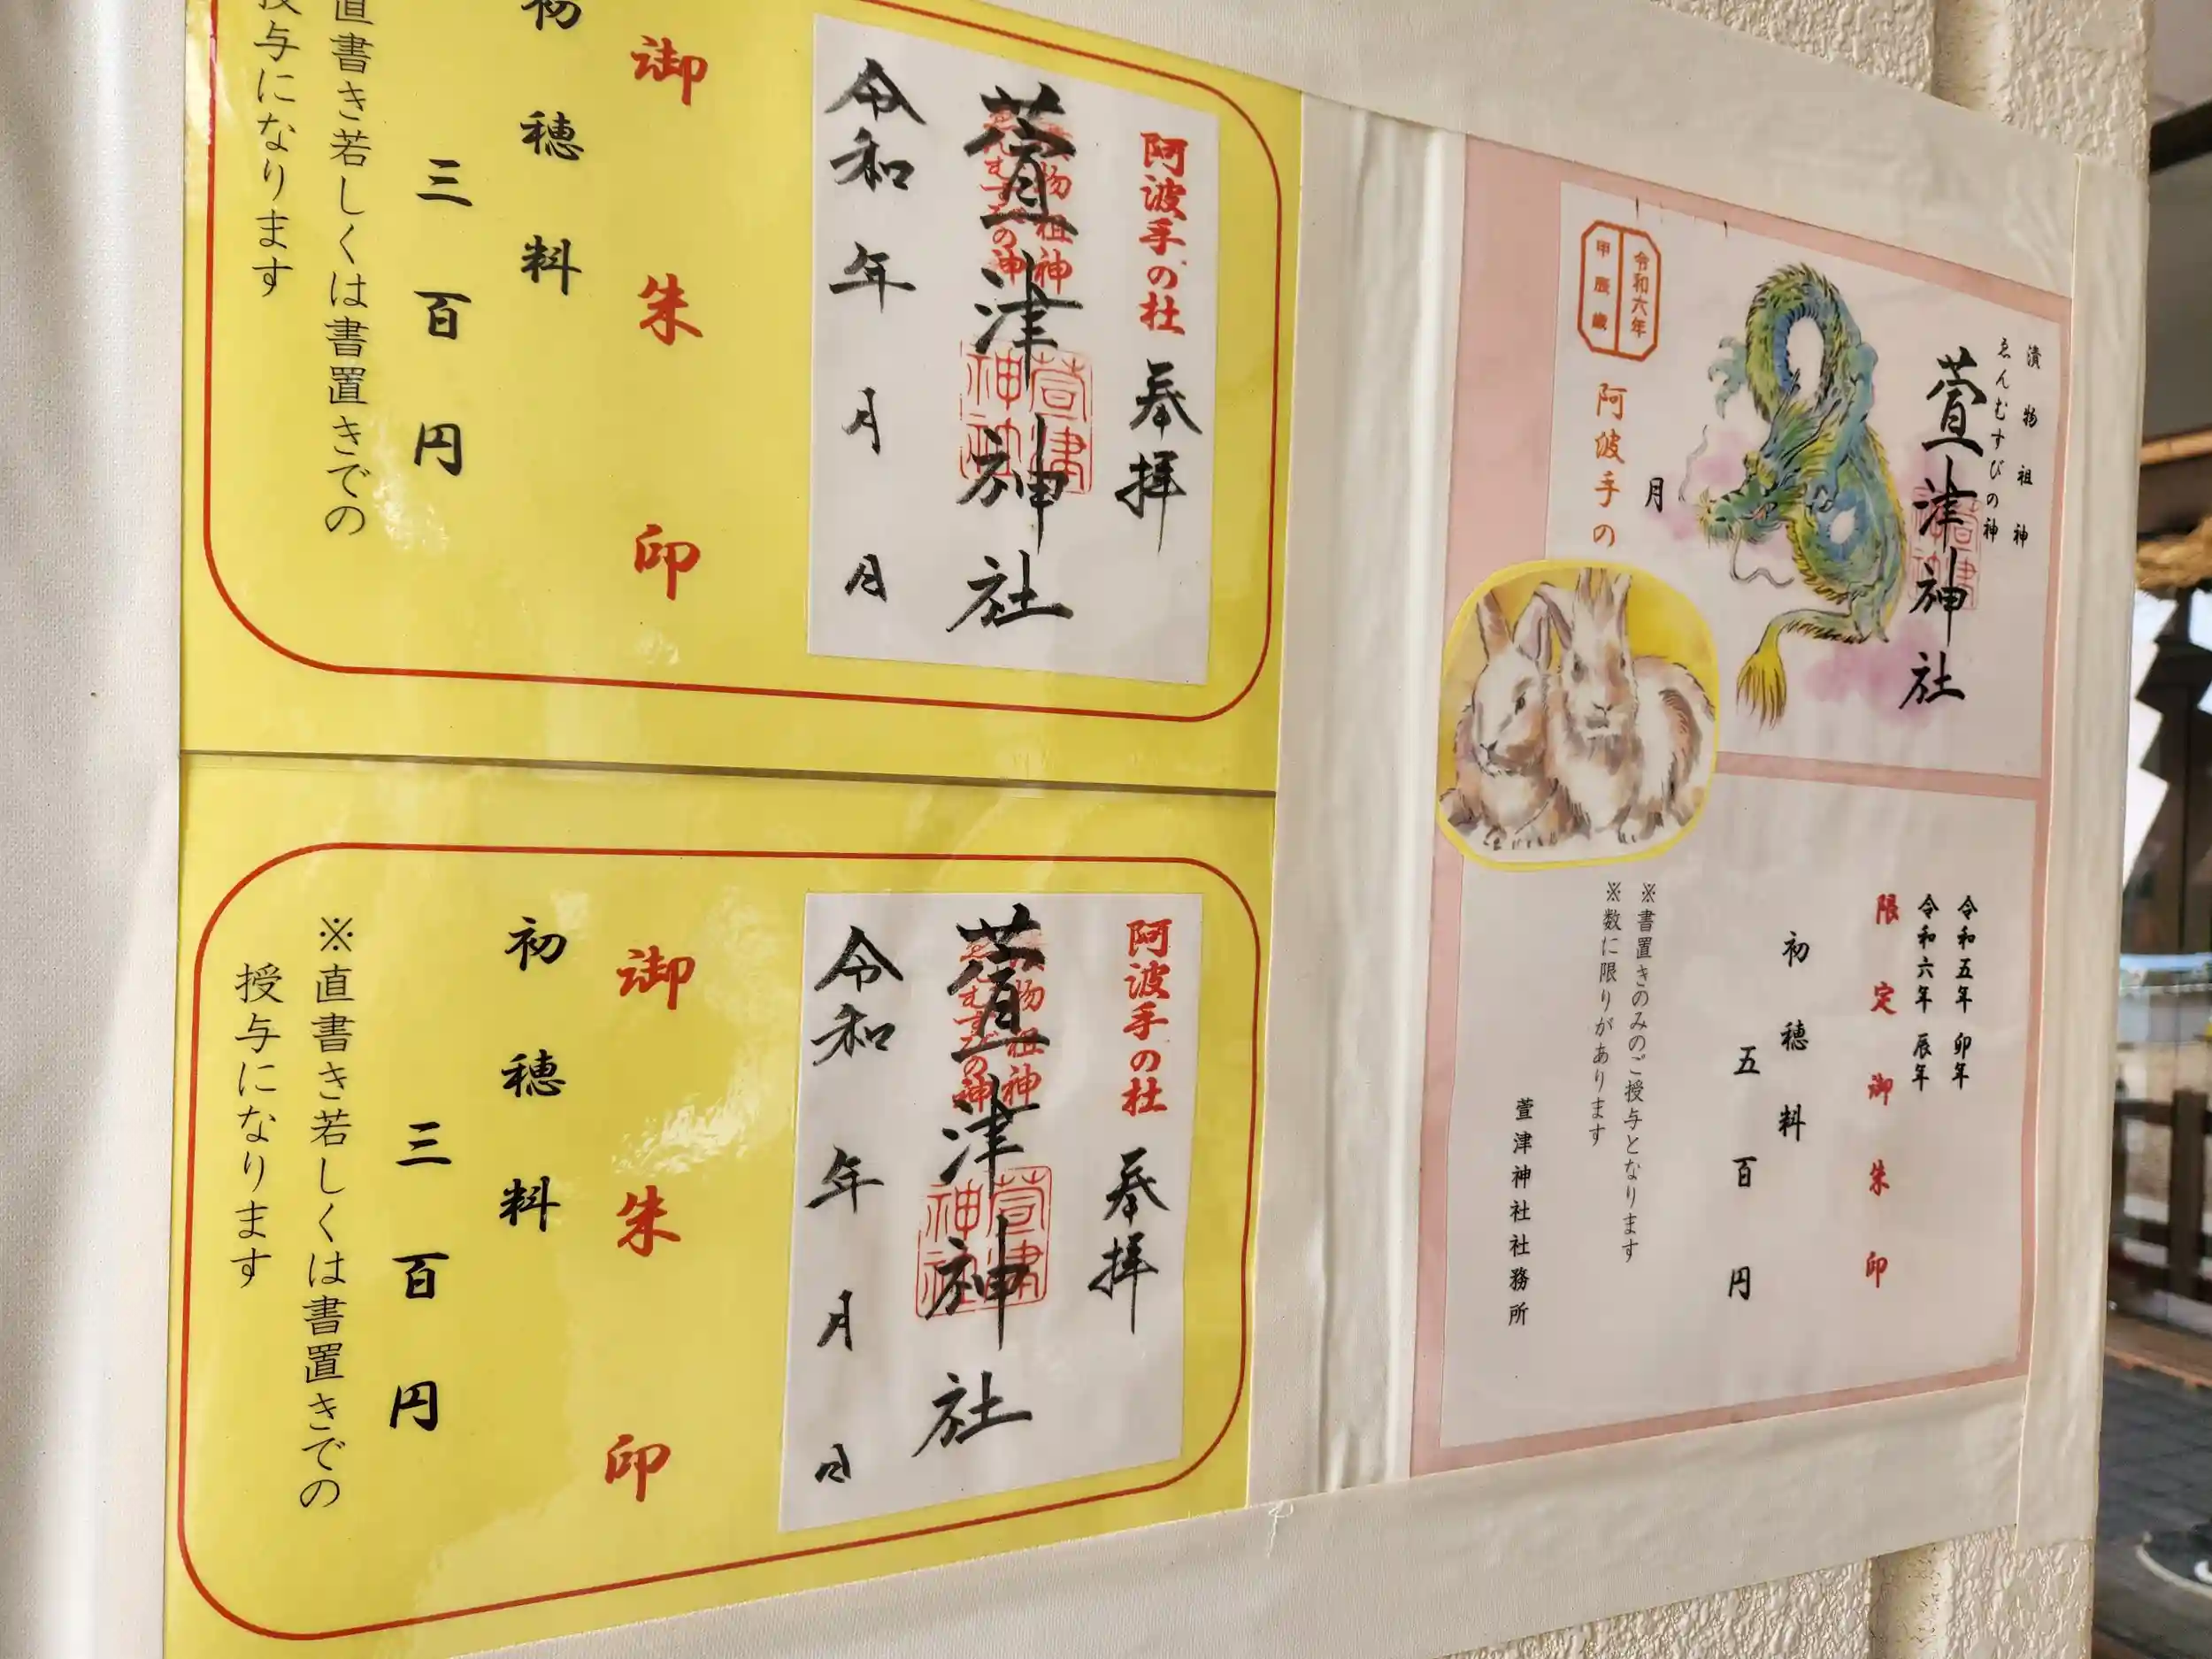 漬物祖神
ゑんむすびの神
萱津神社
月
令和六年
甲辰歳
阿波手の
令和五年 卯年
令和六年 辰年
限定御朱印
初穂料
五百円
※書置きのみのご授与となります
※数に限りがあります
萱津神社社務所
阿波手の杜
奉拝
萱津神社
令和 年 月 日
御朱印
初穂料
三百円
直書き若しくは書置きでの
授与になります
阿波手の杜
奉拝
萱津神社
令和 年 月 日
御朱印
初穂料
三百円
※直書き若しくは書置きでの
授与になります